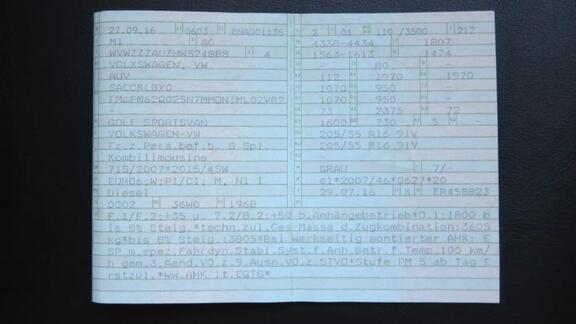 27.09.16 0603 BNA001135
M1 AC
WVWZZZAUZHW524888 4
VOLKSWAGEN, VW
AUV
SACCRLBX0
FM6FM62Q025N7MMON1ML02VR2
-
GOLF SPORTSVAN
VOLKSWAGEN-VW
Fz.z.Pers.bef.b. 8 Spl.
Kombilimousine
715/2007*2015/45W
EURO6;W;PI/CI; M, N1 I
Diesel
0002 36W0 1968
2 01 110 /3500 217
4338-4434 1807
1563-1613 1474
- 80 -
112 1970 1970
1070 950 -
1070 950 -
73 2375 72
1600 730 5 -
205/55 R16 91V
205/55 R16 91V
-
GRAU 7/-
e1*2007/46*0627*20
29.07.16 K ER458823
F.1/F.2:+35 u. 7.2/8.2:+50 b.Anhängebetrieb*O.1:1800 b
is 8% Steig.*techn.zul.Ges-Masse d.Zugkombination:3605
kg*bis 8% Steig.:3805*Bei werkseitig montierter AHK: E
SP m.spez.Fahrdyn.Stabi.Syst.f.Anh.Betr.f.Temp.100 km/
h gem.3.Aend.VO.z.9.Ausn.VO.z.STVO*Stufe PM 5 ab Tag E
rstzul.*ww.AHK lt.EGTG*